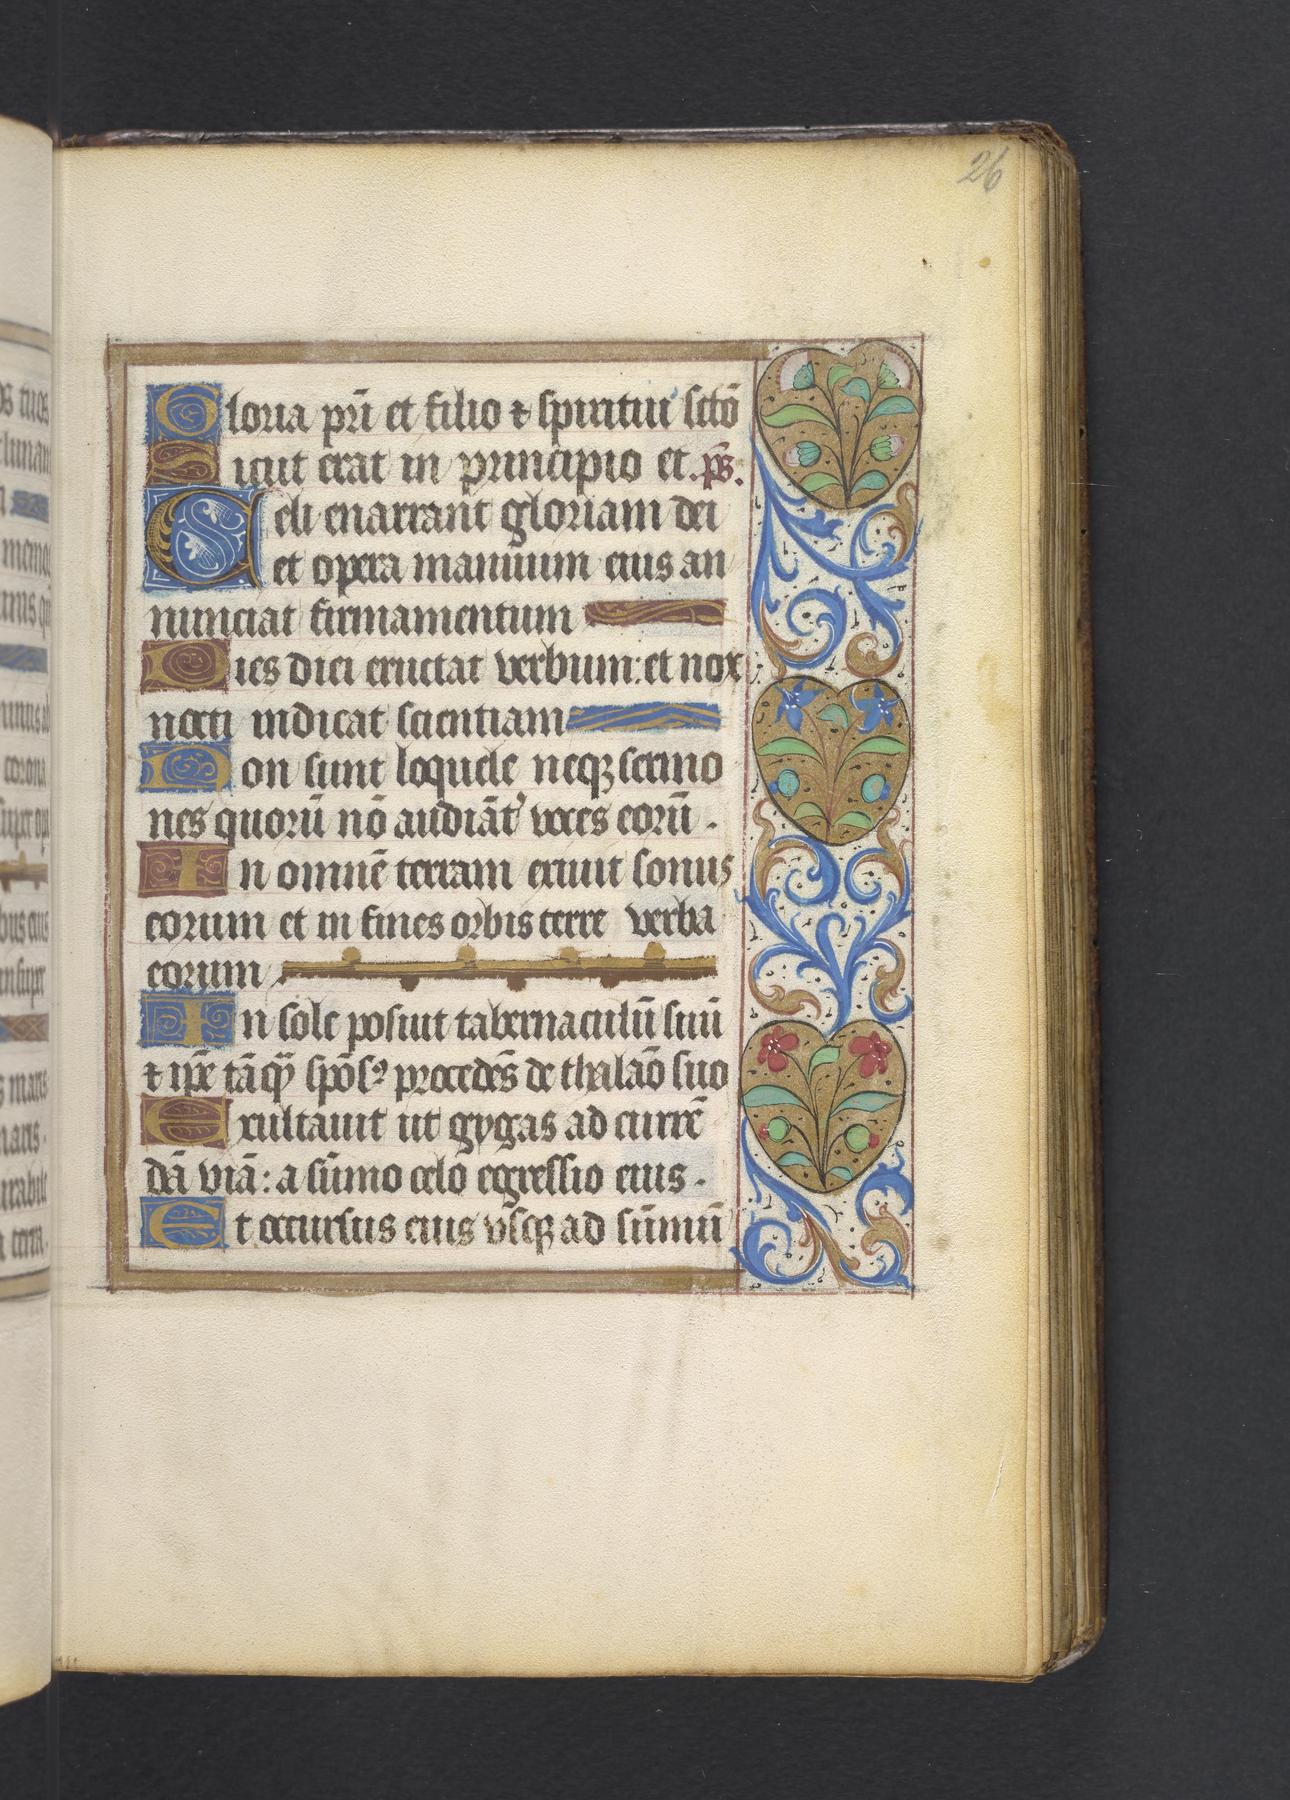 26
Gloria pr̃i et filio ⁊ spiritui sctõ
Sicut erat in principio et. p̃s.
Celi enarrant gloriam dei
et opera manuum eius an
nunciat firmamentum
Dies diei eructat verbum: et nox
nocti indicat scientiam
Non sunt loquele neqꝫ sermo
nes quorũ nõ audiãt᷑ voces eorũ .
In omnẽ terram exiuit sonus
eorum et in fines orbis terre verba
eorum
In sole posuit tabernaculũ suũ
⁊ ip̃e tãqꝫ spõsꝰ procedẽs de thalão suo
Exultauit ut gygas ad currẽ
dã viã: a sũmo celo egressio eius .
Et occursus eius vsqꝫ ad sũmũ